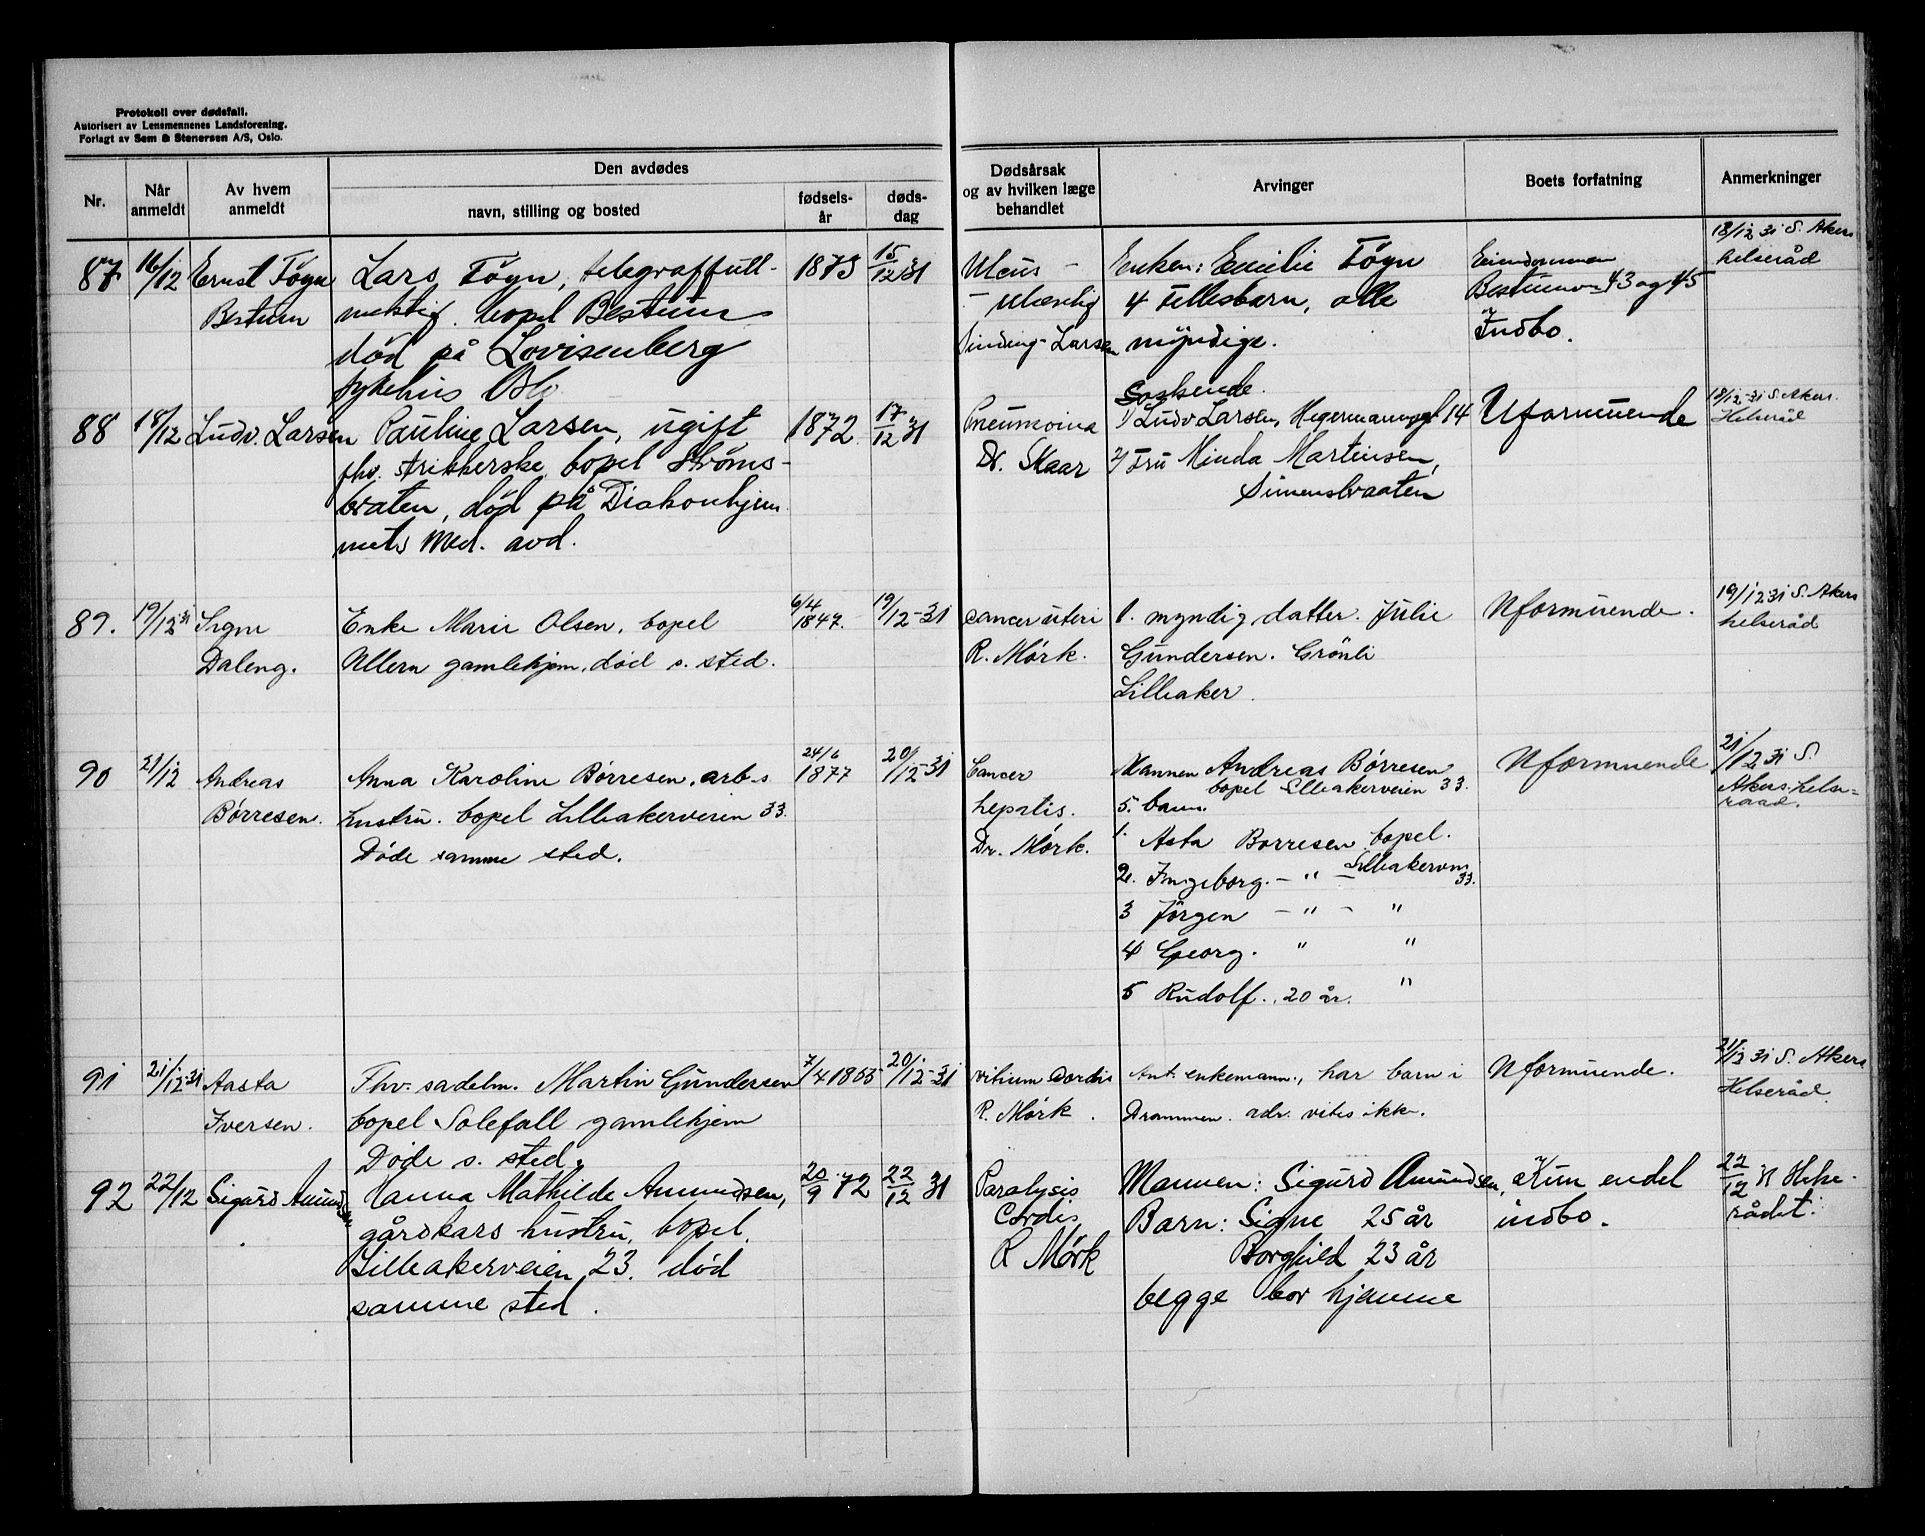 Protokoll over dødsfall.
Autorisert av Lensmennenes Landsforening.
Forlagt av Sem & Stenersen A/S, Oslo.
Nr.
Når anmeldt
Av hvem anmeldt
Den avdødes
navn, stilling og bosted
fødsels-år
døds-dag
Dødsårsak og av hvilken læge behandlet
Arvinger
Boets forfatning
Anmerkninger
87 16/12 Ernst Tøgn Lars Tøgn, telegraffull- 1873 15/12 31 Ulcus - Enken: Emilie Tøgn Eiendommen 18/12 31 S. Akers
Bestum mektig. bopel Bestum 4 Fellesbarn, alle Bestumvn 43 og 45 helseråd
død på Lovisenberg Sinding-Larsen myndige. Indbo.
sykehus Oslo
Søskende.
88 18/12 Ludv. Larsen Pauline Larsen, ugift 1872 17/12 31 Pneumonia 1/ Ludv Larsen, 14 Uformuende 18/12-31 S. Akers
fhv. strikkerske, bopel Strøms- Dr. Skaar 2/ Fru Minda Martinsen, Helseråd
braten, død på Diakonhjem- Simensbraaten
mets Med. avd.
89. 19/12 31 Signe Enke Marie Olsen. bopel 6/4 1847. 19/12-31 cancer uteri 1. myndig datter. Julie Uformuende. 19/12 31 S. Akers
Daleng. Ullern gamlehjem, død s. sted. R. Mørk. Gundersen. Grönli helseråd
Lilleaker.
90 21/12 Andreas Anna Karoline Børresen. arb-s 24/6 1877 20/12-31 Cancer Mannen Andreas Børresen Uformuende 21/12 31 S.
bopel Lilleakerveien 33.
Børresen. hustru. bopel Lilleakerveien 33. hepatis. 5. barn. Akers helse-
raad.
Døde samme sted. Dr. Mørk. 1. Asta Borresen bopel.
2. Ingeborg. - " - Lilleakervn 33.
3 Jörgen - " - "
4 Georg. " "
5 Rudolf., 20 år. "
91 21/12-31 Aasta Fhv. sadelm. Martin Gundersen 7/4 1855 20/12-31 vitium Cordis Ant. enkemann., har barn i Uformuende. 21/12 31 S. Akers
Iversen. bopel Solefall gamlehjem R. Mørk. Drammen. adr. vites ikke. Helseråd.
Døde s. sted.
92 22/12 Sigurd Amundsen Hanna Mathilde Amundsen, 20/9 72 22/12 31 Paralysis Mannen: Sigurd Amundsen, Kun endel 22/12 31 Helse-
gårdkars hustru, bopel. Cordis Barn: Signe 25 år indbo. rådet.
Lilleakerveien 23. død R Mørk Borghild 23 år
samme sted. begge bor hjemme